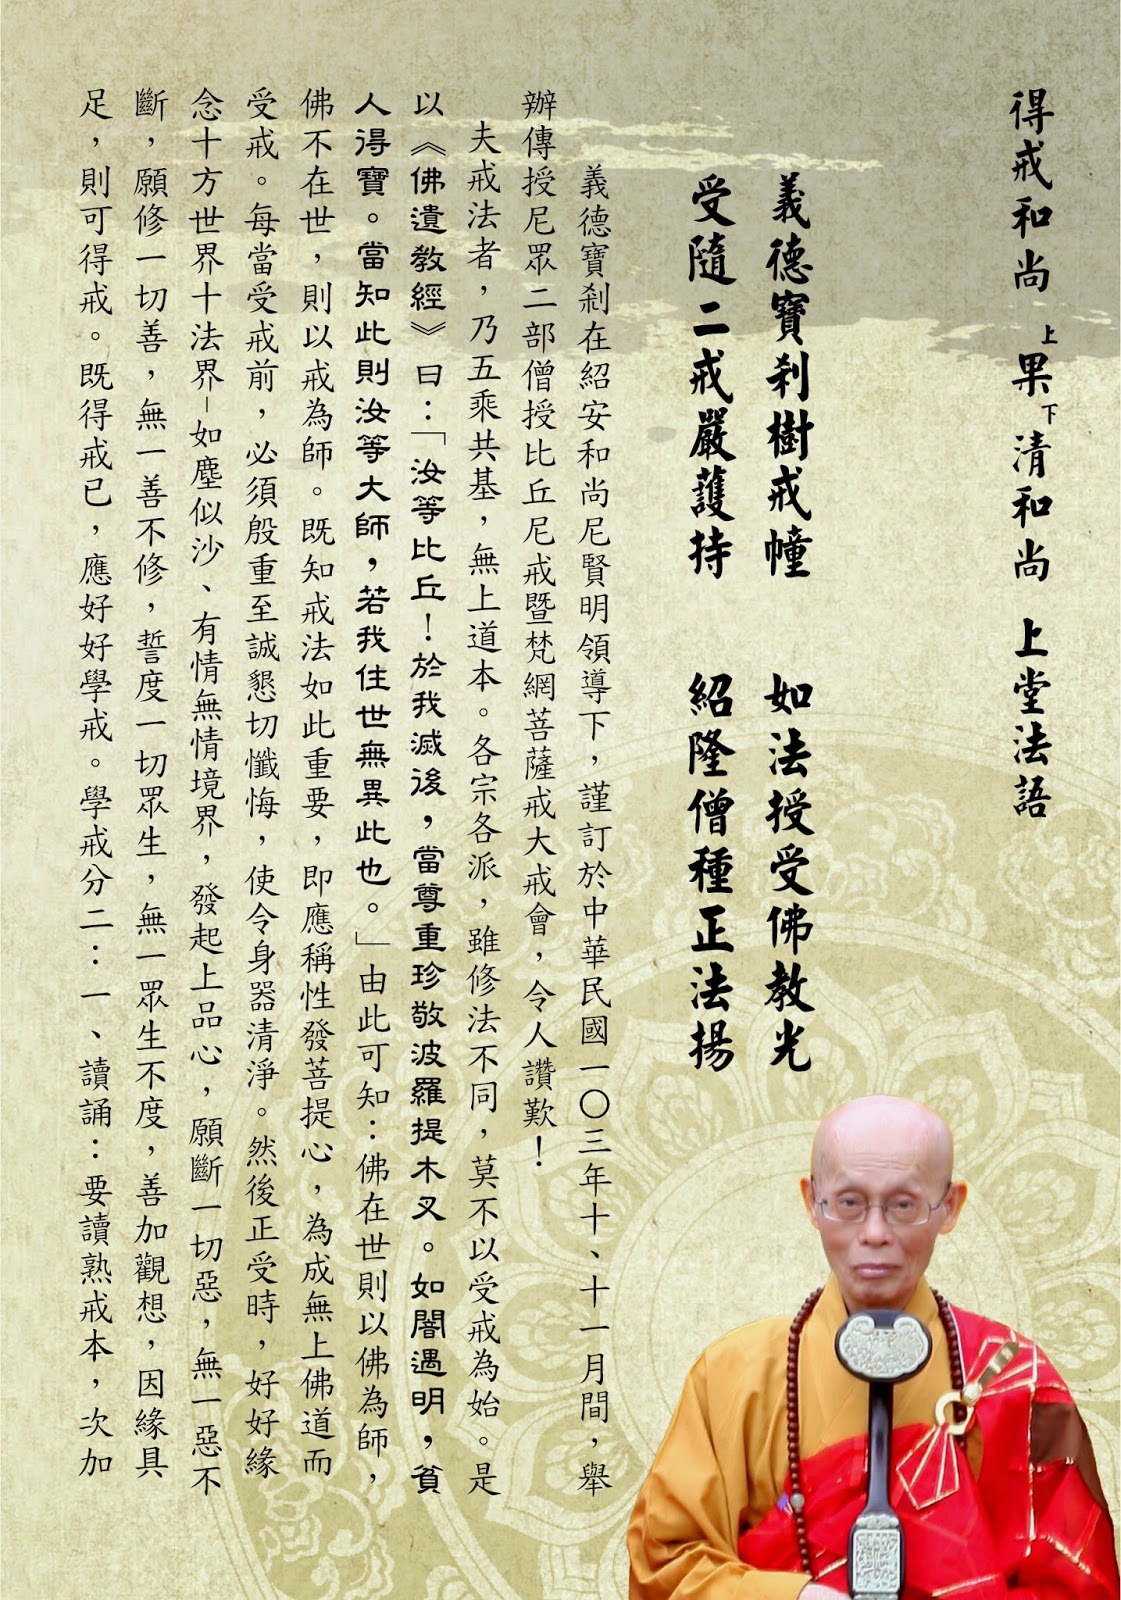 得戒和尚 上果下清和尚 上堂法語
義德寶剎樹戒幢 如法授受佛教光
受隨二戒嚴護持 紹隆僧種正法揚
義德寶剎在紹安和尚尼賢明領導下，謹訂於中華民國一〇三年十、十一月間，舉
辦傳授尼眾二部僧授比丘尼戒暨梵網菩薩戒大戒會，令人讚歎！
夫戒法者，乃五乘共基，無上道本。各宗各派，雖修法不同，莫不以受戒為始。是
以《佛遺教經》曰：「汝等比丘！於我滅後，當尊重珍敬波羅提木叉。如闇遇明，貧
人得寶。當知此則汝等大師，若我住世無異此也。」由此可知：佛在世則以佛為師，
佛不在世，則以戒為師。既知戒法如此重要，即應稱性發菩提心，為成無上佛道而
受戒。每當受戒前，必須殷重至誠懇切懺悔，使令身器清淨。然後正受時，好好緣
念十方世界十法界–如塵似沙、有情無情境界，發起上品心，願斷一切惡，無一惡不
斷，願修一切善，無一善不修，誓度一切眾生，無一眾生不度，善加觀想，因緣具
足，則可得戒。既得戒已，應好好學戒。學戒分二：一、讀誦：要讀熟戒本，次加